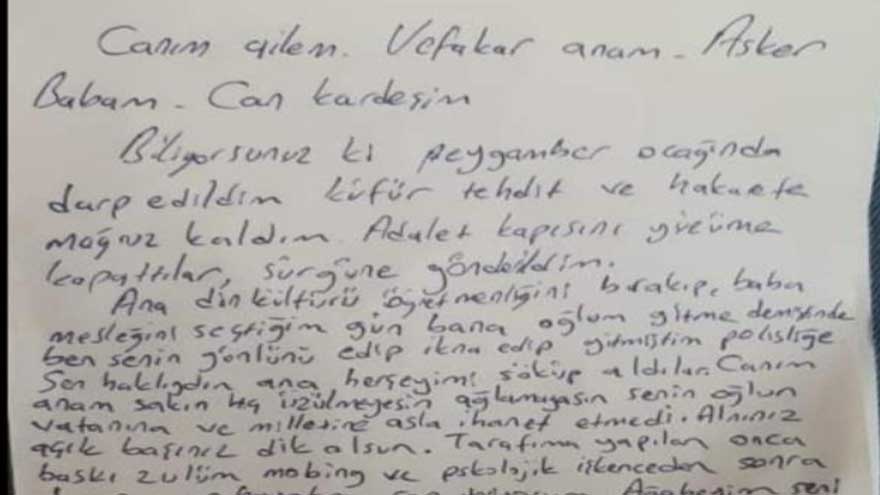 Canım ailem. Vefakar anam - Asker
Babam - Can kardeşim
Biliyorsunuz ki peygamber ocağında
darp edildim küfür tehdit ve hakarete
mağruz kaldım. Adalet kapısını yüzüme
kapattılar, sürgüne gönderildim.
Ana din kültürü öğretmenliğini bırakıp, baba
mesleğini seçtiğim gün bana oğlum gitme demiştinde
ben senin gönlünü edip ikna edip gitmiştim polisliğe
Sen haklıydın ana herşeyimi söküp aldılar. Canım
anam sakın hiç üzülmeyesin ağlamayasın senin oğlun
vatanına ve milletine asla ihanet etmedi. Alnınız
açık başınız dik olsun. Tarafıma yapılan onca
baskı zulüm mobing ve pskolojik işkenceden sonra
Ağabeyim seni